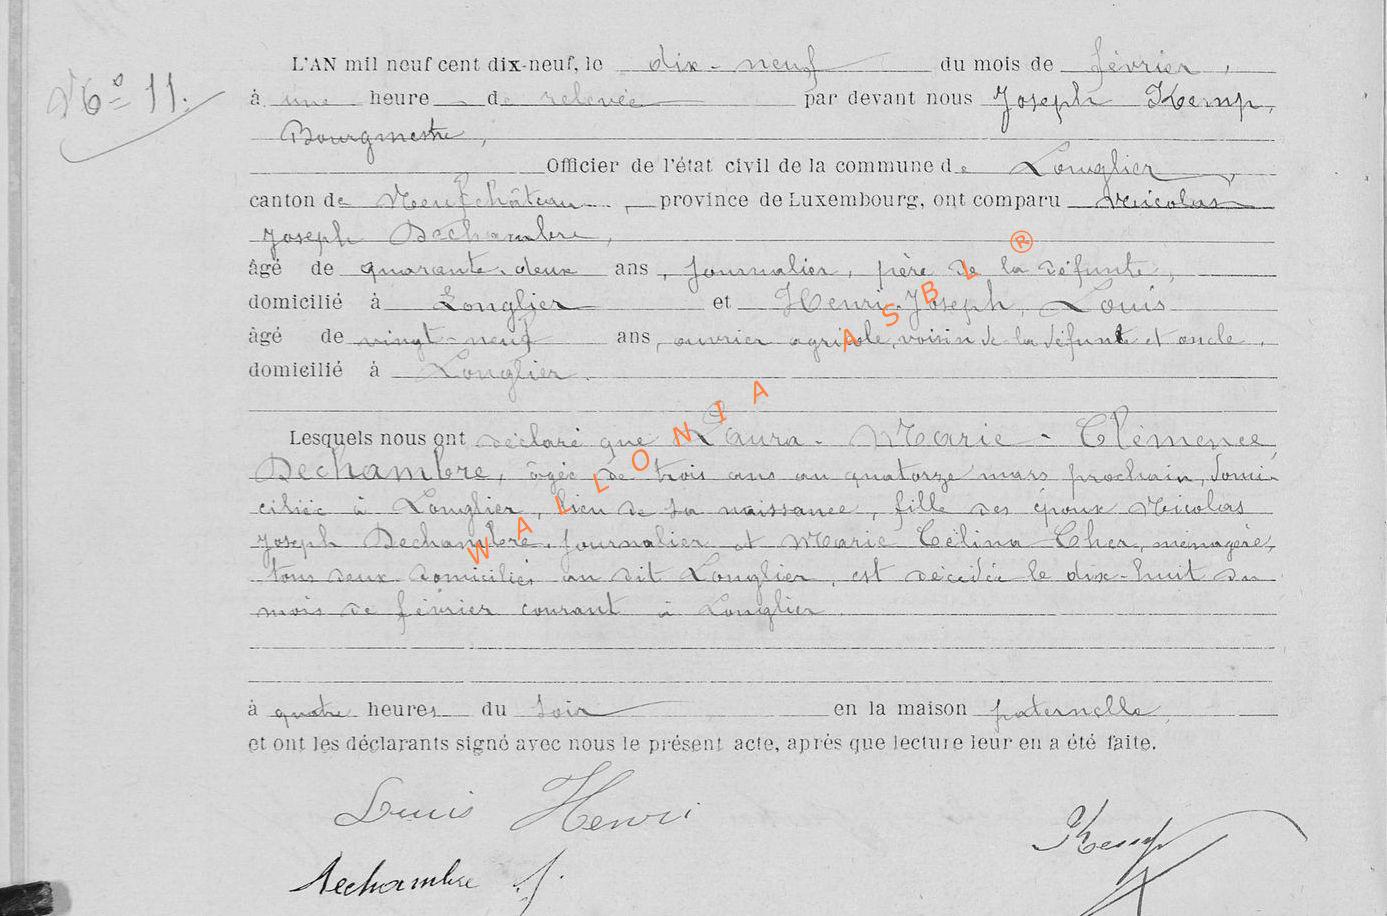 N° 11.
L'AN mil neuf cent dix-neuf, le dix-neuf du mois de février,
à une heure de relevée par devant nous Joseph Kemp,
Bourgmestre,
Officier de l'état civil de la commune de Longlier,
canton de Neufchâteau, province de Luxembourg, ont comparu Nicolas
Joseph Dechambre,
âgé de quarante-deux ans, journalier, père de la défunte,
domicilié à Longlier et Henri-Joseph Louis
âgé de vingt-neuf ans, ouvrier agricole, voisin de la défunte et oncle,
domicilié à Longlier.
Lesquels nous ont déclaré que Laura-Marie-Clémence
Dechambre, âgée de trois ans au quatorze mars prochain, domi-
ciliée à Longlier, lieu de sa naissance, fille des époux Nicolas
Joseph Dechambre, journalier et Marie Célina Cher, ménagère,
tous deux domiciliés au dit Longlier, est décédée le dix-huit du
mois de février courant à Longlier
à quatre heures du soir en la maison paternelle,
et ont les déclarants signé avec nous le présent acte, après que lecture leur en a été faite.
Louis Henri
Kemp
Dechambre J.
WALLONIA ASBL ®